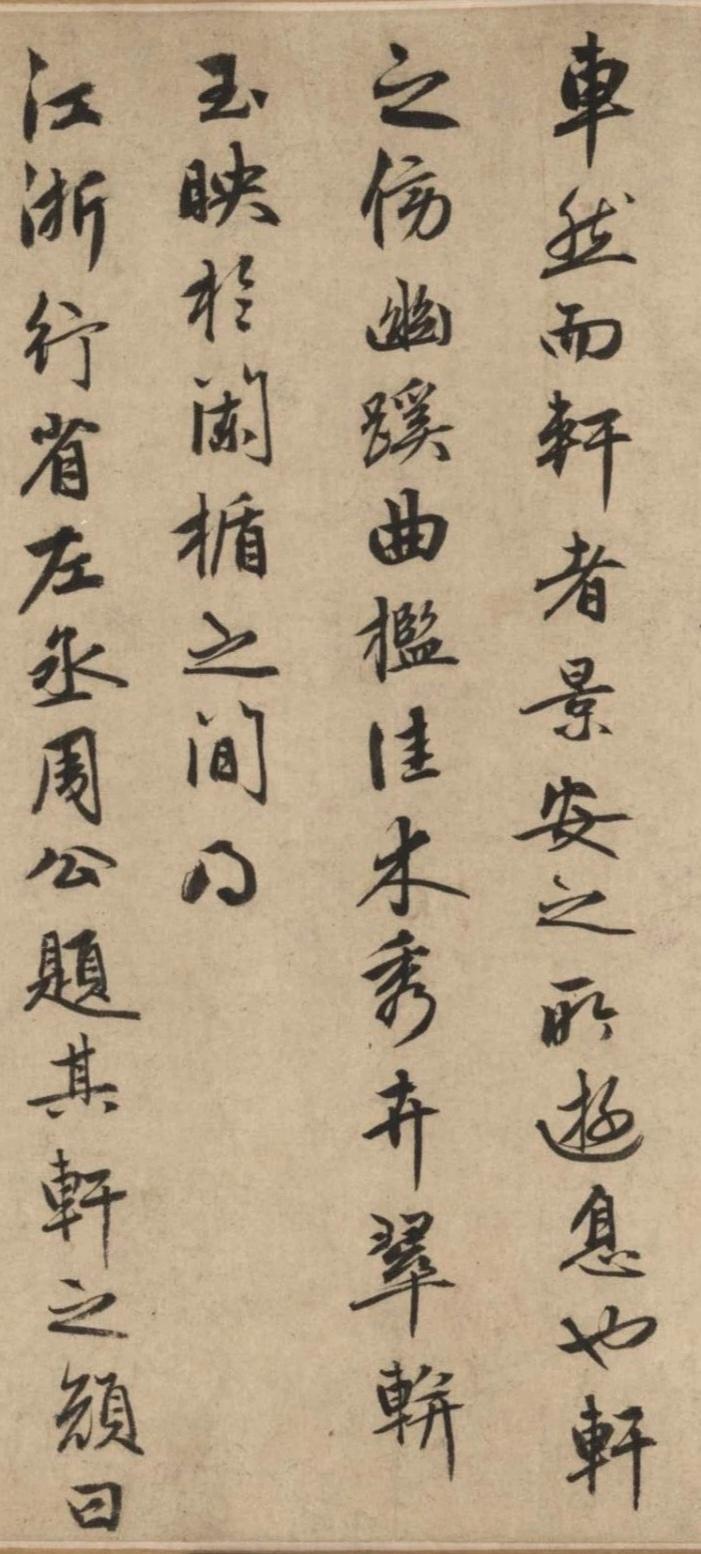 車然而軒者景安之所遊息也軒
之傍幽蹊曲檻佳木秀卉翠軿
玉映於闌楯之間乃
江浙行省左丞周公題其軒之顏曰